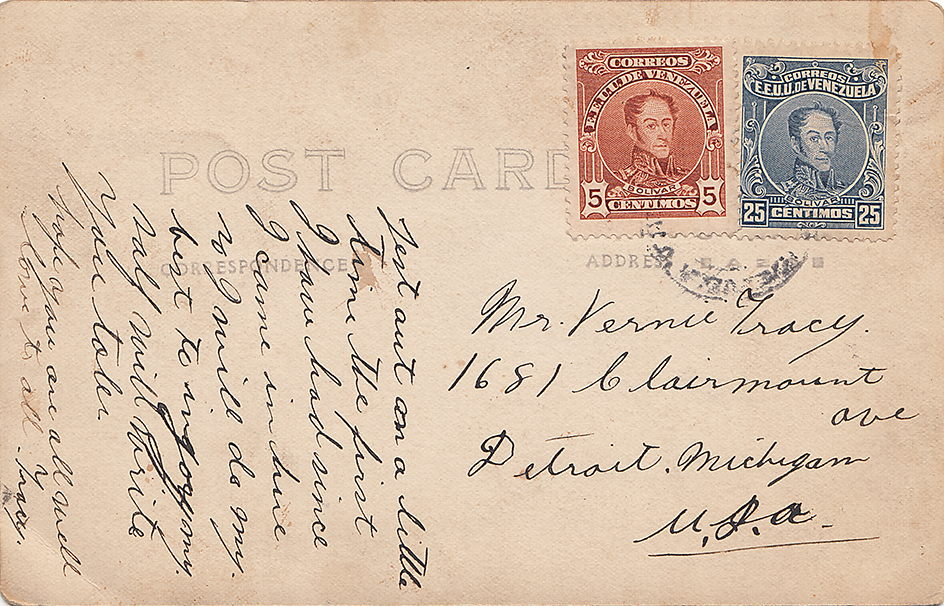 POST CARD
CORREOS
E.E.U.U. DE VENEZUELA
BOLIVAR
5 CENTIMOS 5
CORREOS
E.E.U.U. DE VENEZUELA
BOLIVAR
25 CENTIMOS 25
CORRESPONDENCE
ADDRESS
Jest out on a little
time the first
I have had since
I came in
will do my.
best to ingoy my.
salf will write
you later
hope you are all well
love to all.
Mr. Vernie Tracy.
1681 Clairmount
ave
Detroit. Michigam
U.S.a.